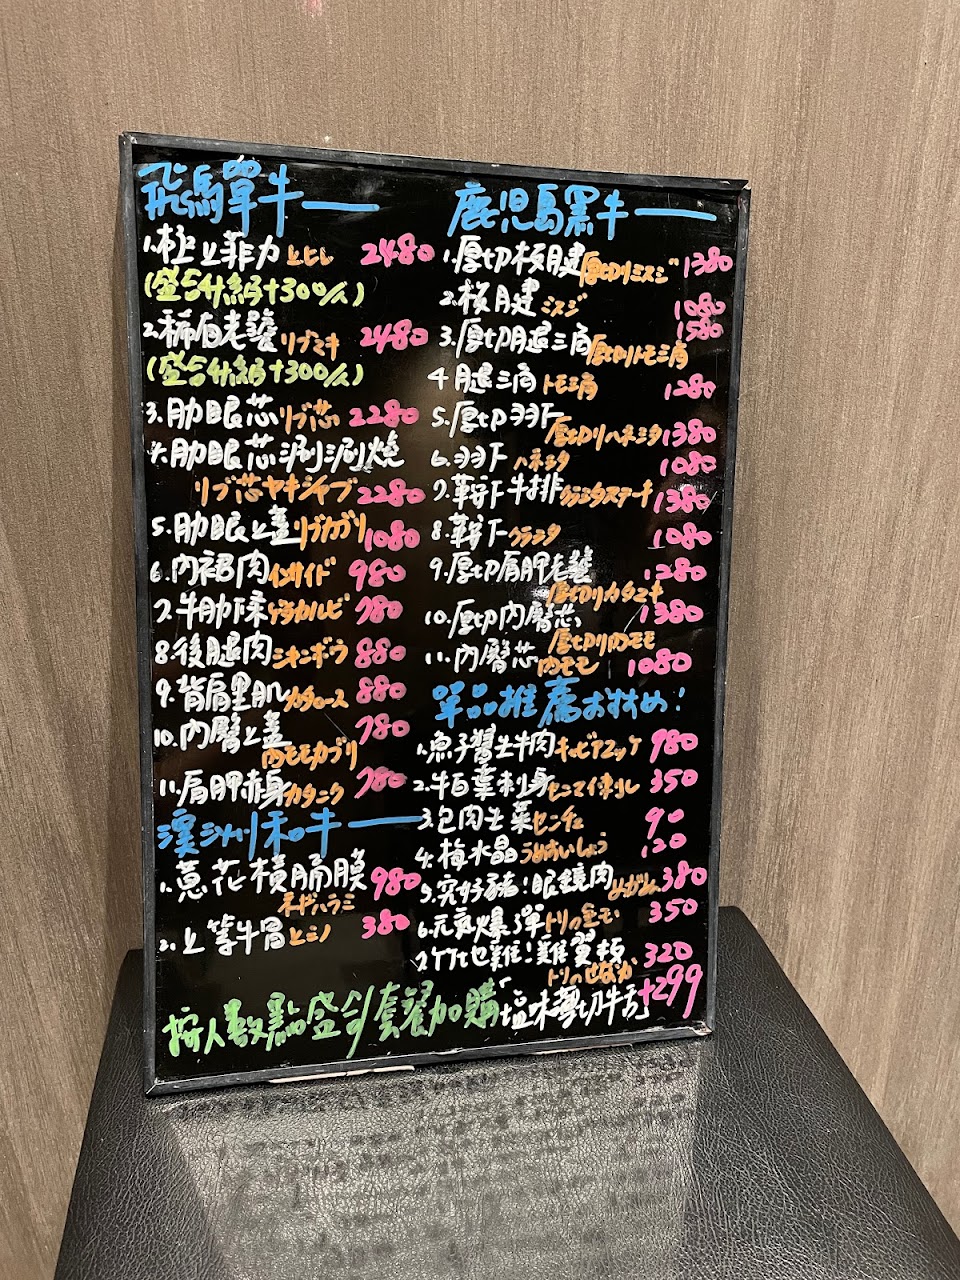 飛驒單牛
1.極上菲力 上ヒレ 2480
(盛合升級+300/人)
2.稀有老饕 リブマキ 2480
(盛合升級+300/人)
3.肋眼芯 リブ芯 2280
4.肋眼芯涮涮燒
リブ芯ヤキシャブ 2280
5.肋眼上蓋 リブカブリ 1080
6.內裙肉 インサイド 980
7.牛肋條 ゲタカルビ 780
8.後腿肉 シキンボウ 880
9.背肩里肌 カタロース 880
10.內臀上蓋 780
内モモカブリ
11.肩胛赤身 カタニク 780
澳洲和牛
1.蔥花橫膈膜 980
ネギハラミ
2.上等牛胃 上ミノ 380
鹿児島黑牛
1.厚切板腱 厚切りミスジ 1380
2.板腱 ミスジ 1080
3.厚切腿三角 厚切りトモ三角 1580
4 腿三角 トモ三角 1280
5.厚切羽下 厚切りハネシタ 1380
6.羽下 ハネシタ 1080
7.鞍下牛排 クラシタステーキ 1380
8.鞍下 クラシタ 1080
9.厚切肩胛老饕 1280
厚切りカタマキ
10.厚切內臀芯 1380
厚切り内モモ
11.內臀芯 内モモ 1080
單品推薦おすすめ!
1.魚子醬生牛肉 キャビアユッケ 980
2.牛百葉刺身 センマイ刺し 350
3.包肉生菜 センチュ 90
4.梅水晶 うめすいしょう 120
5.究好豬!眼鏡肉 めがね 380
6.元氣爆彈 トリの 350
7.竹地雞!雞翼板 320
トリの
按人數點盛合套餐加購「塩味薄切牛舌 +299